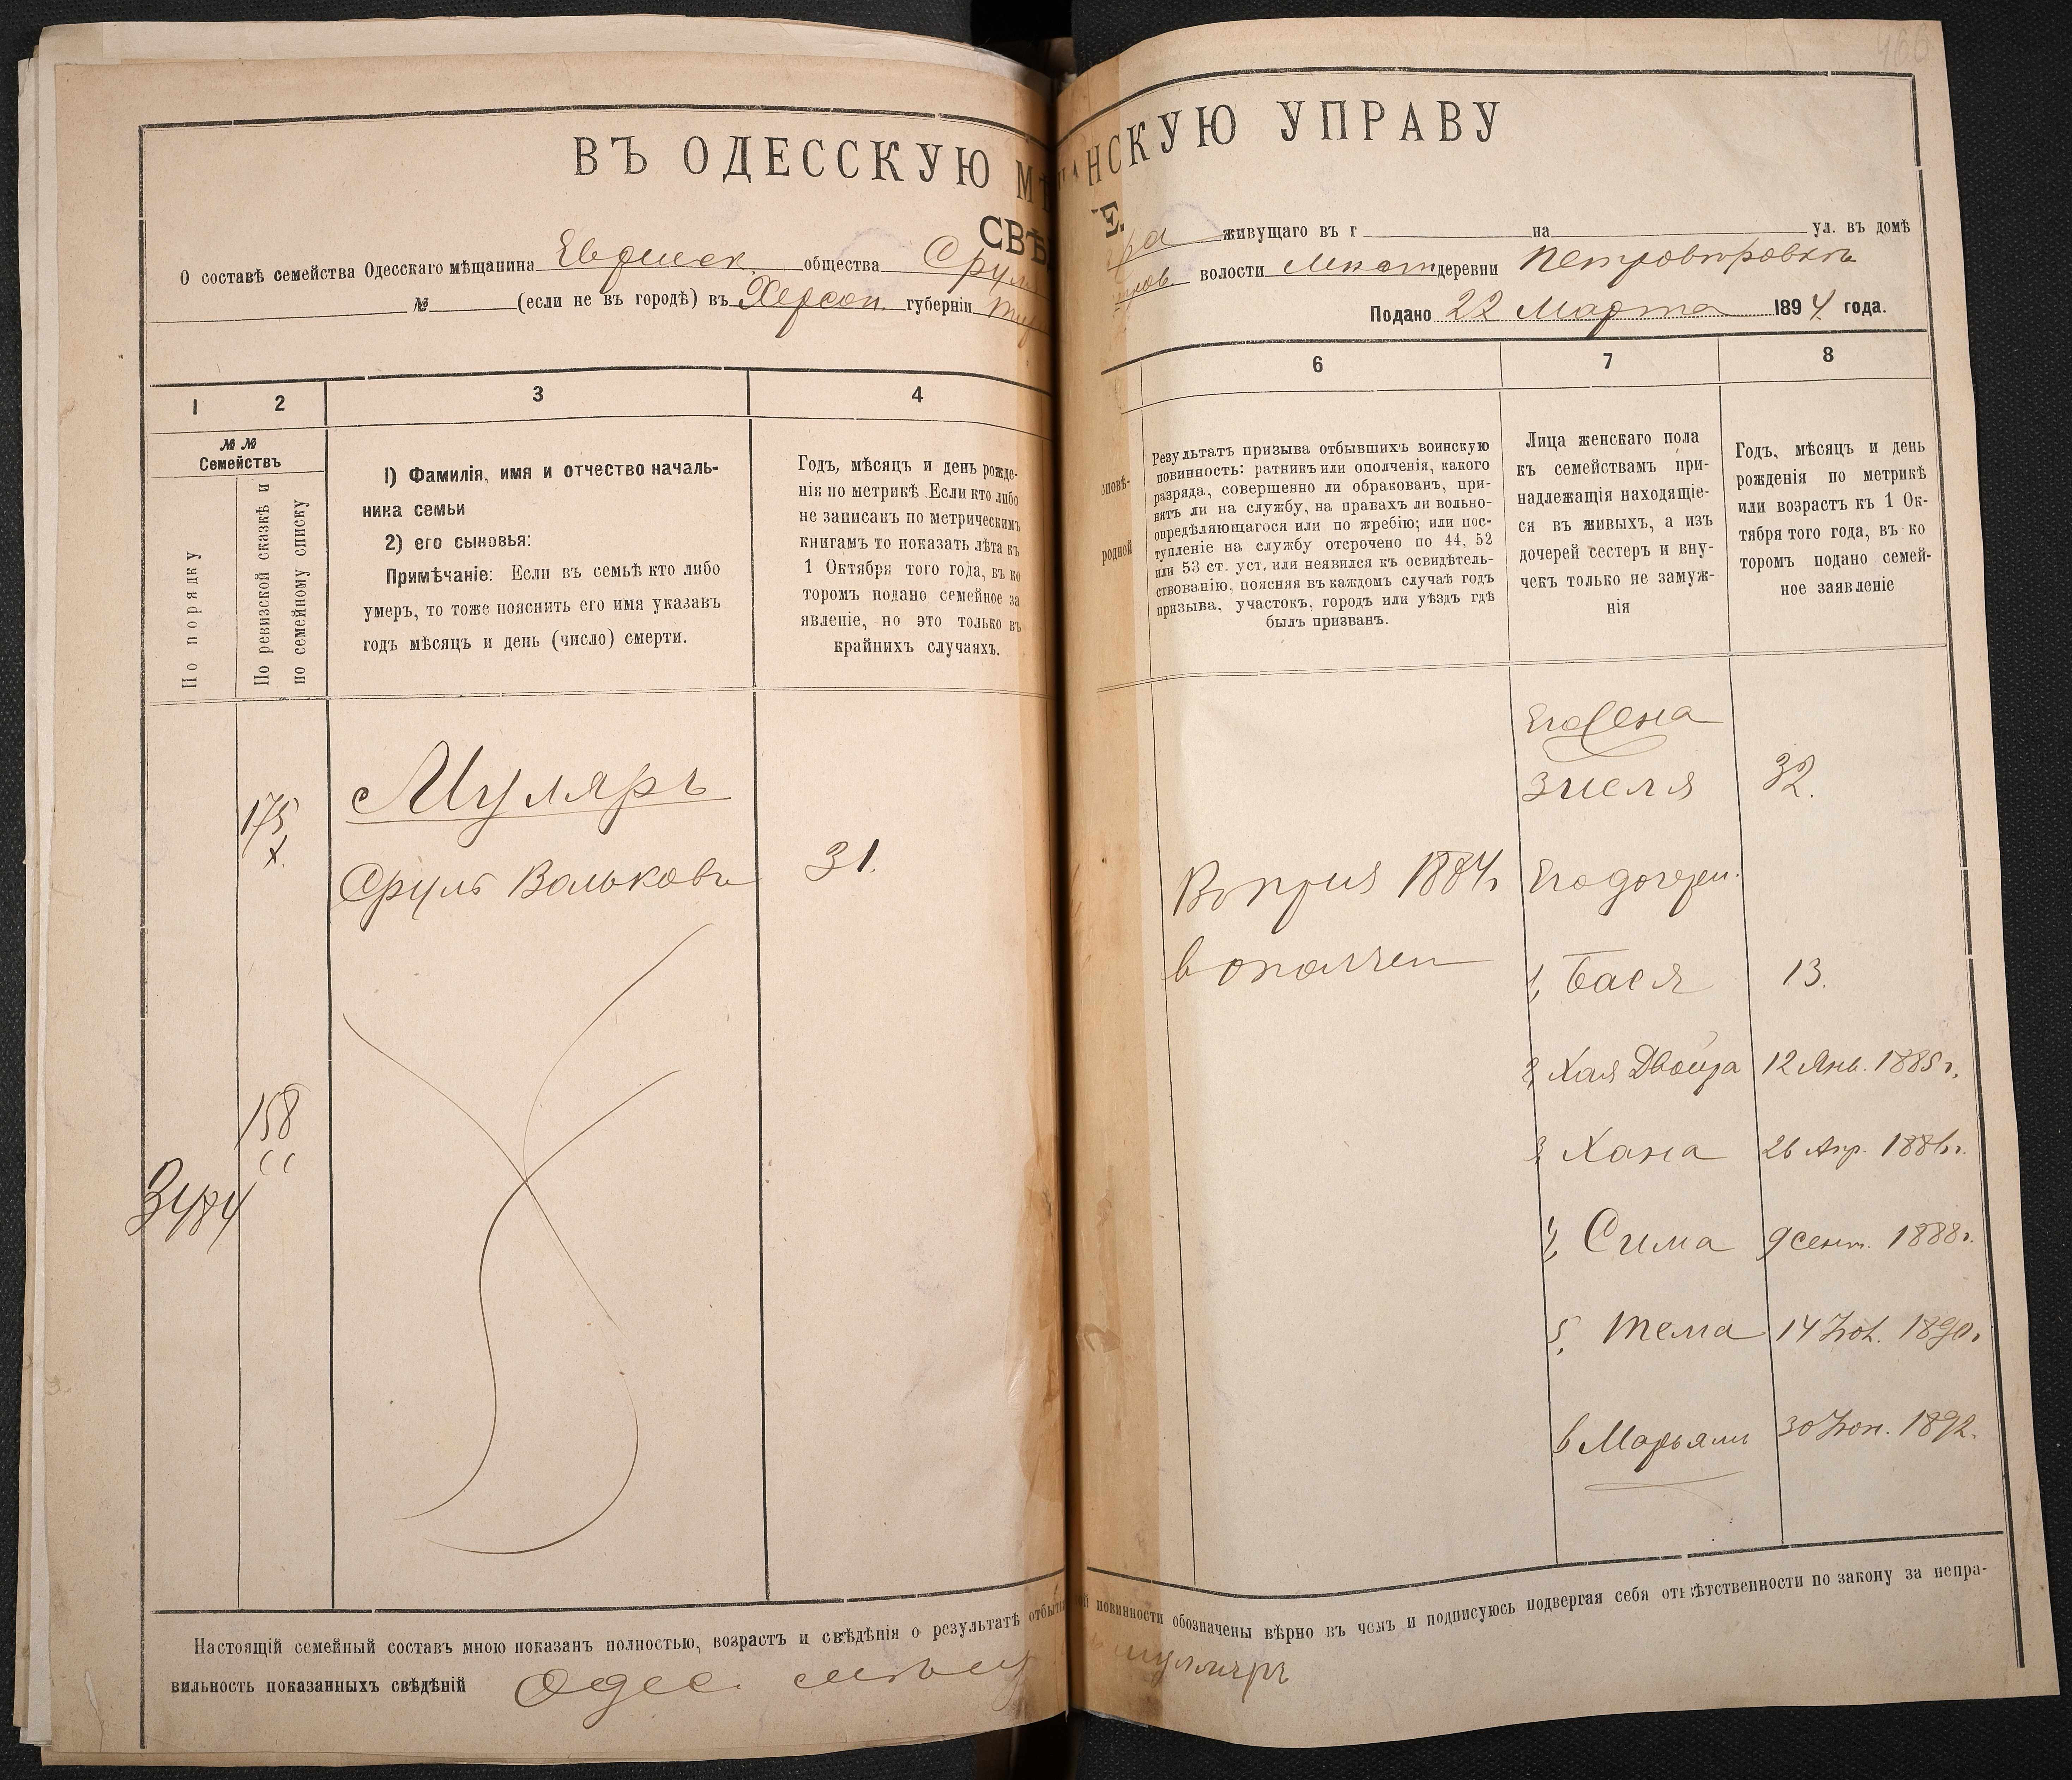 466
ВЪ ОДЕССКУЮ МѢ
НСКУЮ УПРАВУ
СВѢ
Е.
О составѣ семейства Одесскаго мѣщанина Еврейск. общества Сруля
ра живущаго въ г на ул. въ домѣ
№ (если не въ городѣ) въ Херсон. губерніи Тир
волости деревни Петровировкѣ
Подано 22 Марта 1894 года.
1 2 3 4
6 7 8
№ №
Семействъ
По порядку
По ревизской сказкѣ и
по семейному списку
1) Фамилія, имя и отчество началь-
ника семьи
2) его сыновья:
Примѣчаніе: Если въ семьѣ кто либо
умеръ, то тоже пояснить его имя указавъ
годъ мѣсяцъ и день (число) смерти.
Годъ, мѣсяцъ и день рожде-
нія по метрикѣ .Если кто либо
не записанъ по метрическимъ
книгамъ то показать лѣта къ
1 Октября того года, въ ко
торомъ подано семейное за
явленіе, но это только въ
крайнихъ случаяхъ.
повѣ-
родной
Результатъ призыва отбывшихъ воинскую
повинность: ратникъ или ополченія, какого
разряда, совершенно ли обракованъ, при-
нятъ ли на службу, на правахъ ли вольно-
опредѣляющагося или по жребію; или пос-
тупленіе на службу отсрочено по 44, 52
или 53 ст. уст. или неявился къ освидѣтель-
ствованію, поясняя въ каждомъ случаѣ годъ
призыва, участокъ, городъ или уѣздъ гдѣ
былъ призванъ.
Лица женскаго пола
къ семействамъ при-
надлежащія находящіе-
ся въ живыхъ, а изъ
дочерей сестеръ и вну-
чекъ только не замуж-
нія
Годъ, мѣсяцъ и день
рожденія по метрикѣ
или возрастъ къ 1 Ок-
тября того года, въ ко
торомъ подано семей-
ное заявленіе
Его жена
175 Муляръ
Зисля 32.
х.
Сруль Вольковъ 31.
В приз 1884 г Его дочери.
в ополчен
1, Бася 13.
2, Хая Двойра 12 Янв. 1885 г.
3, Хана 26 Апр. 1886 г.
158
3484
4, Сима 9 сент. 1888 г.
5, Тема 14 Нов. 1890 г.
6 Марьямъ 30 Нов. 1892.
Настоящій семейный составъ мною показанъ полностью, возрастъ и свѣдѣнія о результатѣ отбыті
й повинности обозначены вѣрно въ чемъ и подписуюсь подвергая себя отвѣтственности по закону за непра-
вильность показанныхъ свѣдѣній Одес. мѣщ
муляръ